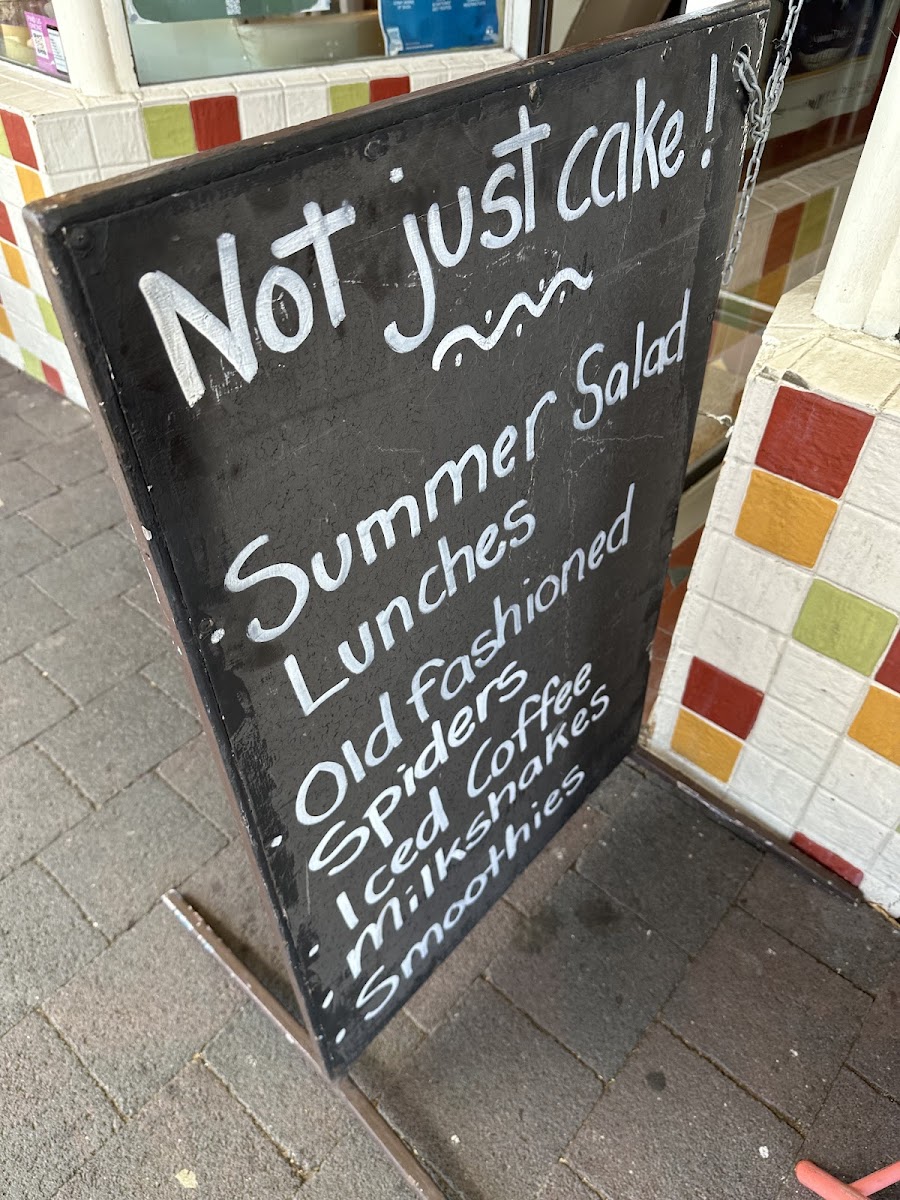 Not just cake!
• Summer Salad
Lunches
• Old fashioned
Spiders
• Iced Coffee
• Milkshakes
• Smoothies